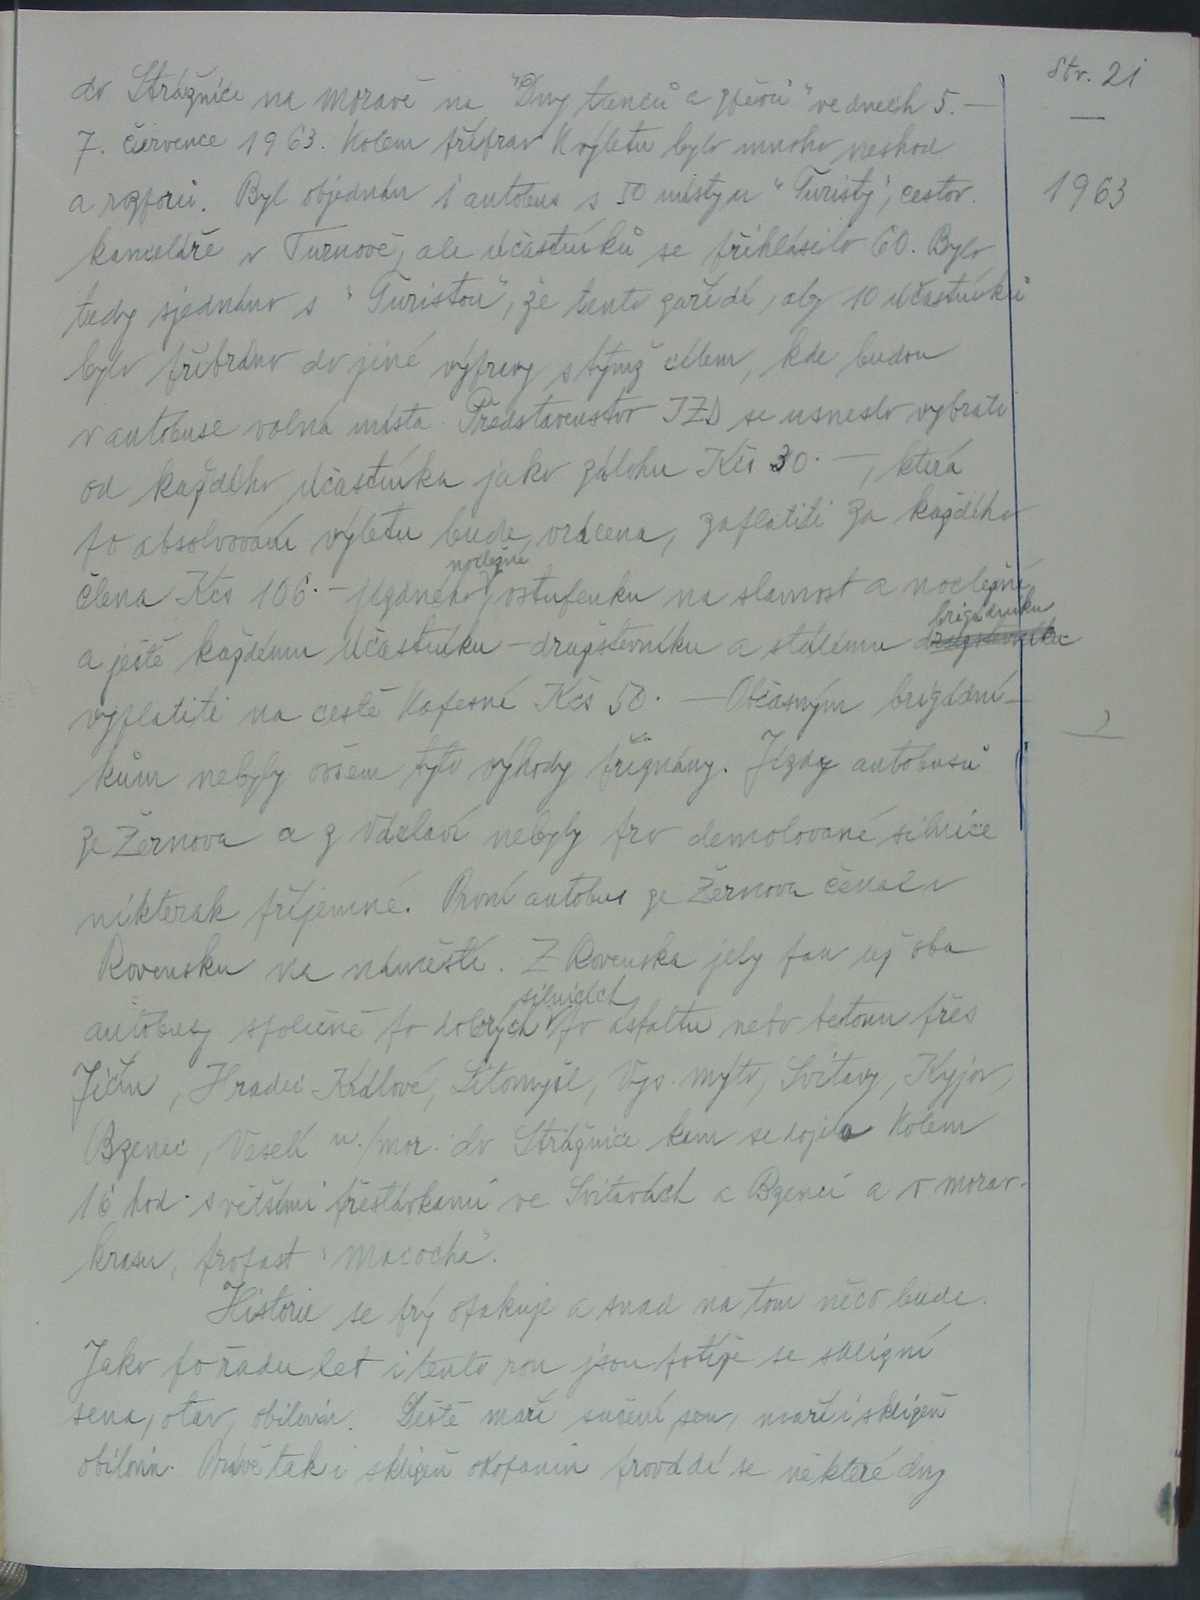 Str. 21
1963
do Strážnice na Moravě na "Dny tanců a zpěvů" ve dnech 5. —
7. července 1963. Kolem příprav k výletu bylo mnoho neshod
a rozporů. Byl objednán 1 autobus s 50 místy u "Turisty", cestov.
kanceláře v Turnově, ale účastníků se přihlásilo 60. Bylo
tedy sjednáno s "Turistou", že tento zařídí, aby 10 účastníků
bylo přibráno do jiné výpravy s týmž cílem, kde budou
v autobuse volná místa. Představenstvo JZD se usneslo vybrati
od každého účastníka jako zálohu Kčs 30.—, která
po absolvování výletu bude vrácena, zaplatiti za každého
člena Kčs 106.— jízdného, nocležné, vstupenku na slavnost a nocležné
a ještě každému účastníku – družstevníku a stálému brigádníku
vyplatiti na cestě kapesné Kčs 50.— Občasným brigádní-
kům nebyly ovšem tyto výhody přiznány. Jízdy autobusů
ze Žernova a z Václaví nebyly pro demolované silnice
nikterak příjemné. První autobus ze Žernova čekal v
Rovensku na náměstí. Z Rovenska jely pak už oba
autobusy společně po dobrých silnicích po asfaltu nebo betonu přes
Jičín, Hradec Králové, Litomyšl, Vys. Mýto, Svitavy, Kyjov,
Bzenec, Veselí n./Mor. do Strážnice kam se dojelo kolem
16 hod. s většími přestávkami ve Svitavách a Bzenci a v morav.
krasu, propast "Macocha".
Historie se prý opakuje a snad na tom něco bude.
Jako po řadu let i tento rok jsou potíže se sklizní
sena, otav, obilovin. Deště maří sušení sen, maří i sklizeň
obilovin. Právě tak i sklizeň okopanin provádí se některé dny